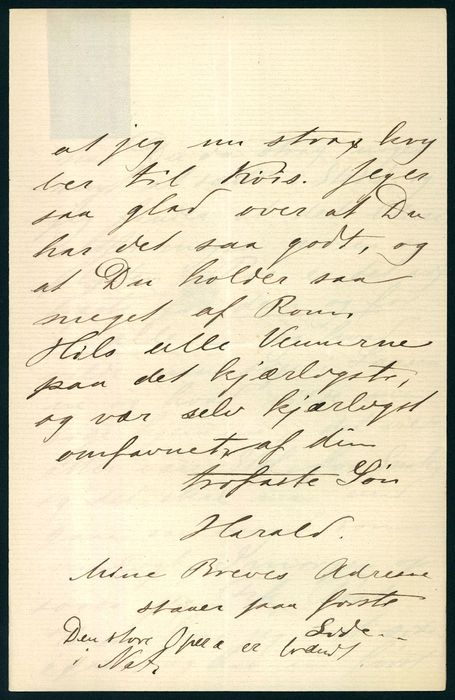 at jeg nu strax
ber til Kris. Jeg er
saa glad over at Du
har det saa godt, og
at Du holder saa
meget af Rom.
Hils alle Vennerne
paa det kjærligste,
og vær selv kjærligst
omfavnet af din
trofaste Søn
Harald.
Mine Breves Adresse
staaer paa første
Side.
Den store Opera er brændt
i Nat.